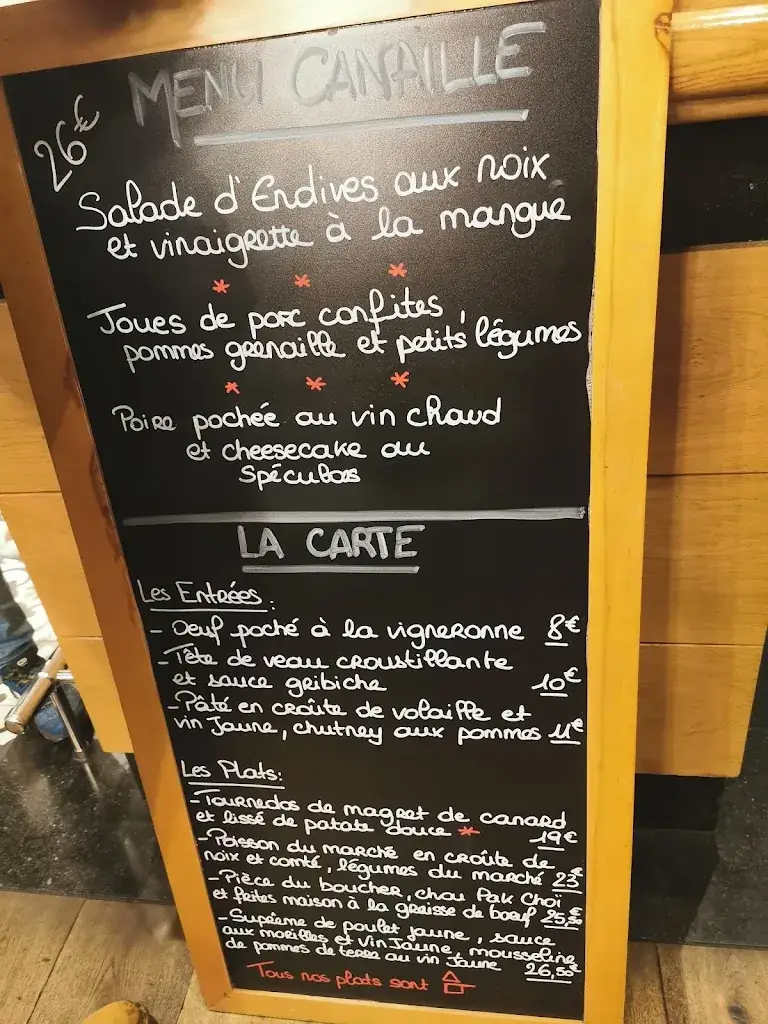 MENU CANAILLE
26€
Salade d'Endives aux noix
et vinaigrette à la mangue
* * *
Joues de porc confites,
pommes grenaille et petits légumes
* * *
Poire pochée au vin chaud
et cheesecake au
Spéculoos
LA CARTE
Les Entrées:
- Oeuf poché à la vigneronne 8€
- Tête de veau croustillante
et sauce gribiche 10€
- Pâté en croûte de volaille et
vin Jaune, chutney aux pommes 11€
Les Plats:
- Tournedos de magret de canard
et lissé de patate douce * 19€
- Poisson du marché en croûte de
noix et comté, légumes du marché 23€
- Pièce du boucher, chou Pak Choï
et frites maison à la graisse de bœuf 25,50€
- Suprême de poulet jaune, sauce
aux morilles et vin Jaune, mousseline
de pommes de terre au vin Jaune 26,50€
Tous nos plats sont